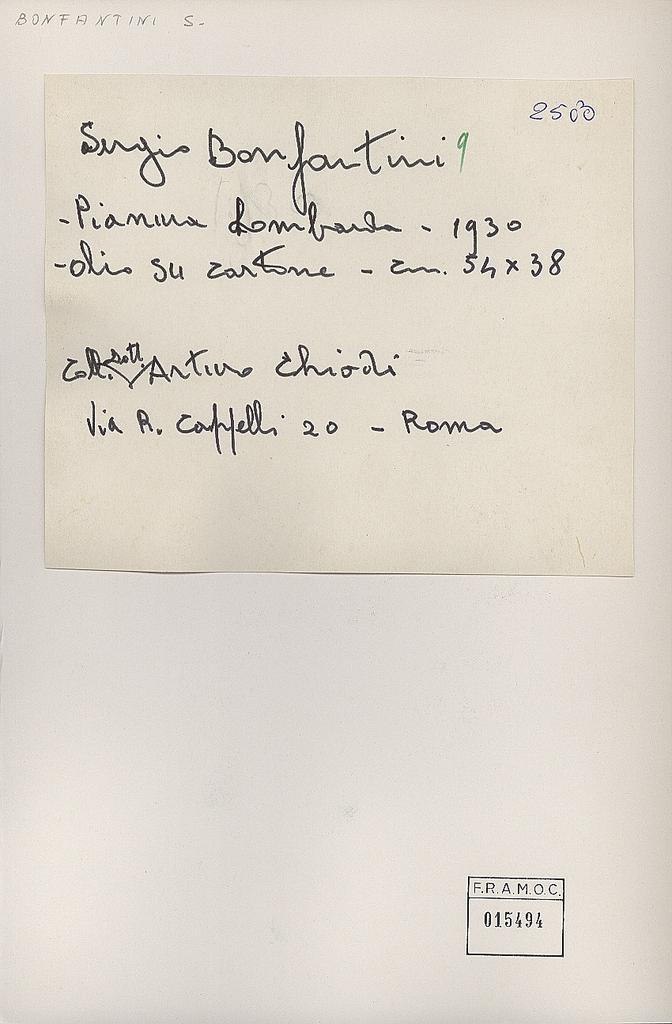 BONFANTINI S.
2500
Sergio Bonfantini 9
- Pianura Lombarda - 1930
- olio su cartone - cm. 54 x 38
Coll. dott. Arturo Chiodi
Via R. Cappelli 20 - Roma
F.R.A.M.O.C.
015494